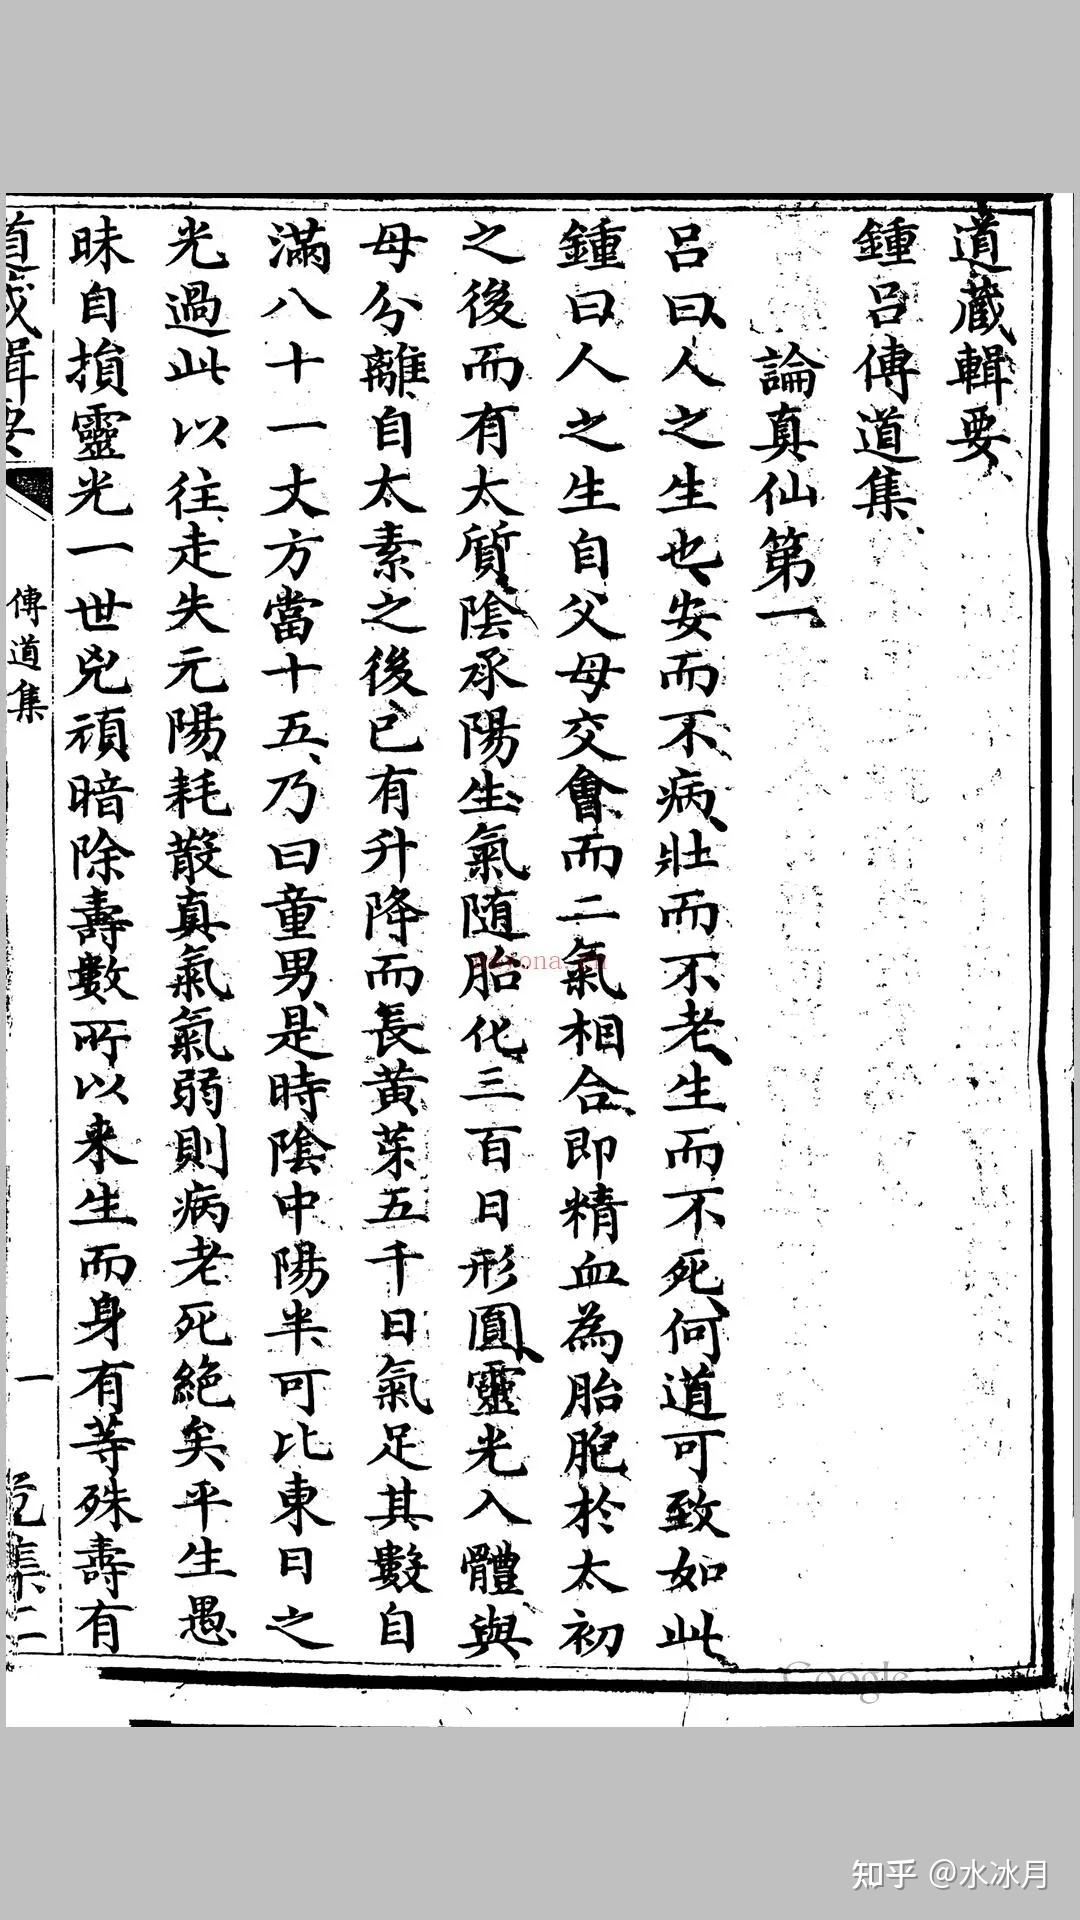 道藏輯要
鍾呂傳道集
論真仙第一
呂曰人之生也安而不病壯而不老生而不死何道可致如此
鍾曰人之生自父母交會而二氣相合即精血為胎胞於太初
之後而有太質陰承陽生氣随胎化三百日形圓靈光入體與
母分離自太素之後已有升降而長黄芽五千日氣足其數自
滿八十一丈方當十五乃曰童男是時陰中陽半可比東日之
光過此以往走失元陽耗散真氣氣弱則病老死絕矣平生愚
昧自損靈光一世兇頑暗除壽數所以来生而身有等殊壽有
道藏輯要
傳道集
一
集二
Google
知乎 @水冰月